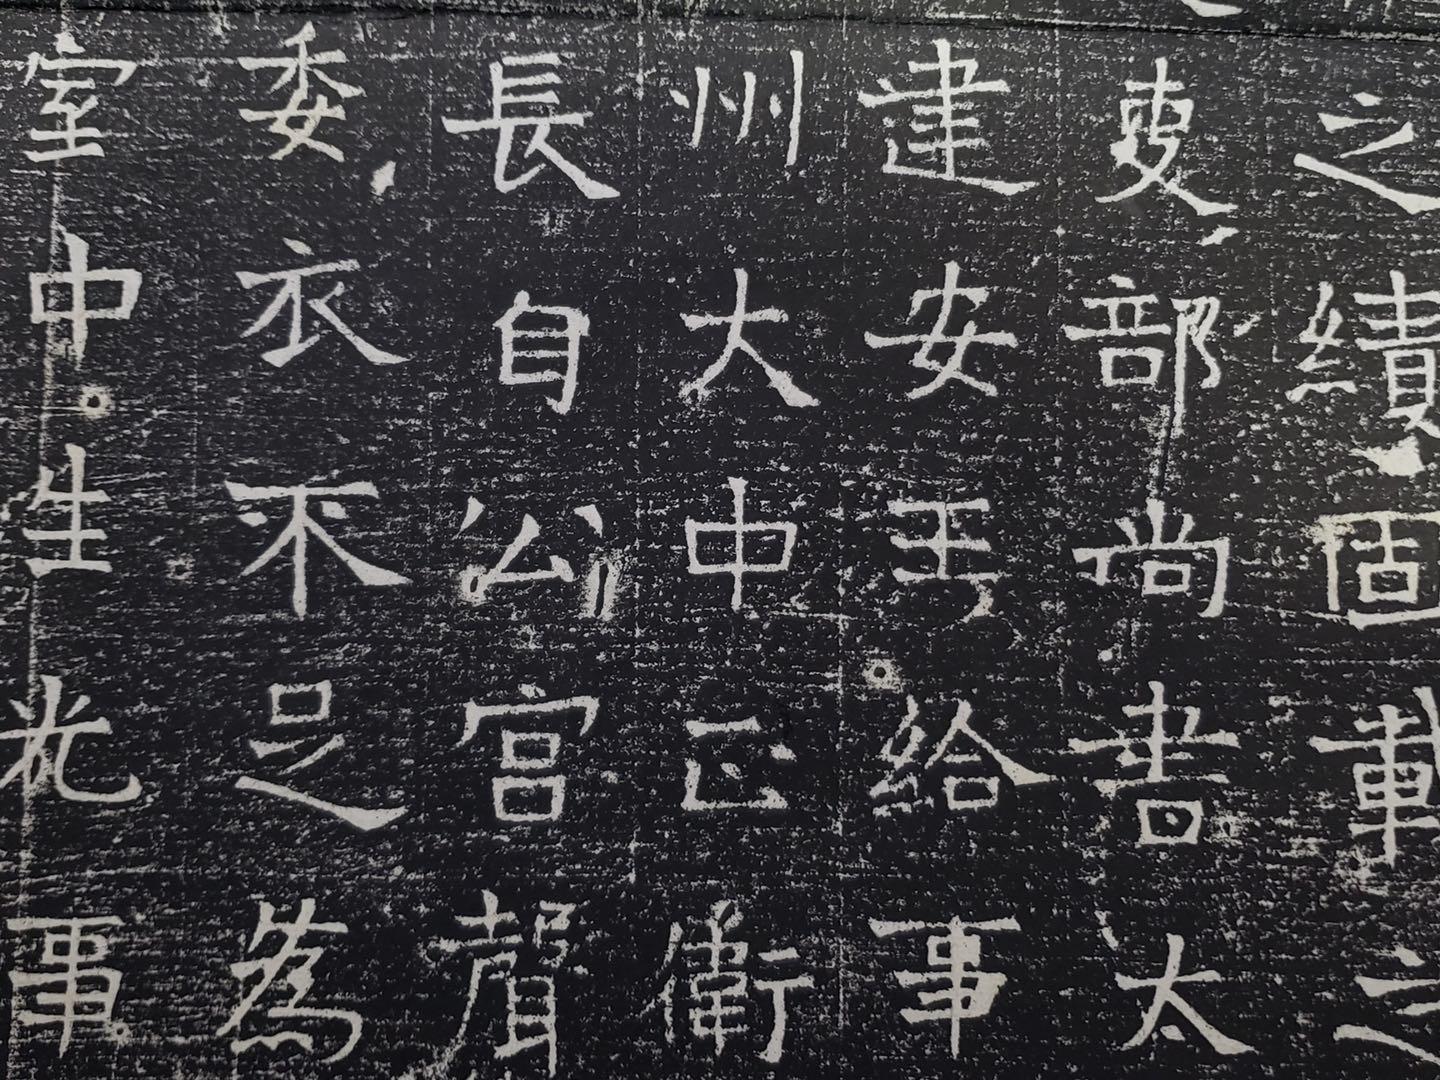 之績固載之
吏部尚書太
建安王給事
州大中正衛
長自公宮聲
委衣不足為
室中生光事